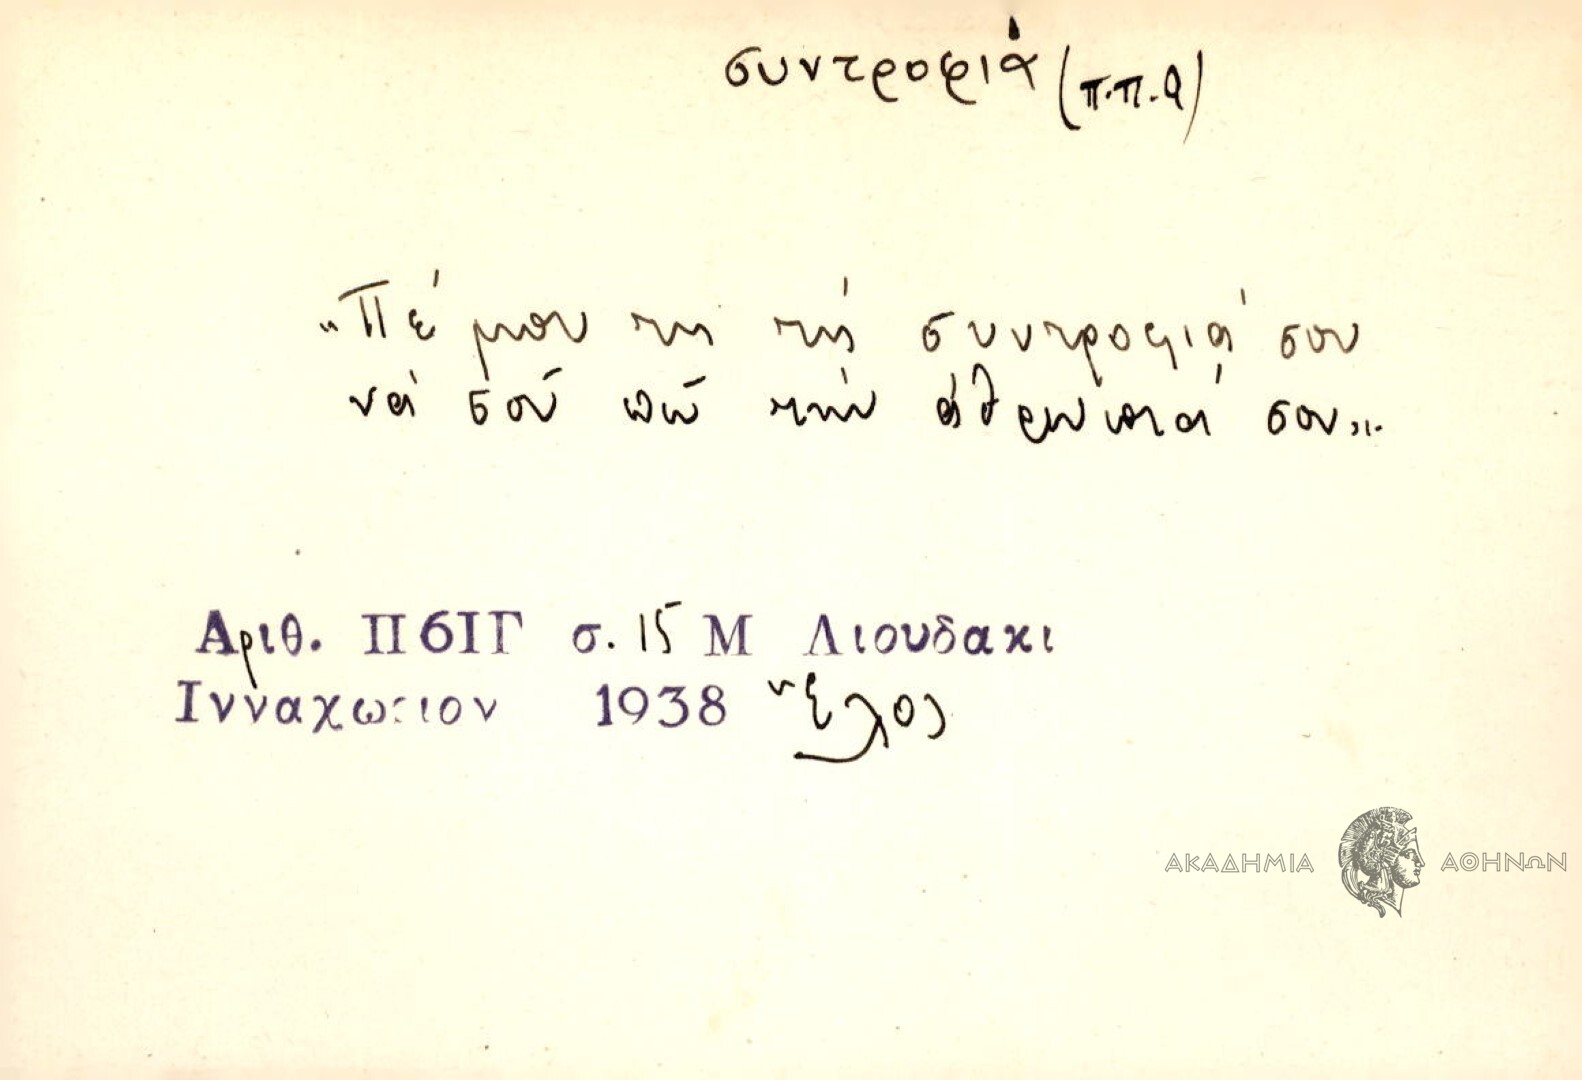 συντροφιά (π.π.α)
„Πέ μου τη τή συντροφιά σου
νά σοῦ πῶ τήν ἀθρωπιά σου„.
Αριθ. Π6ΙΓ σ. 15 Μ Λιουδακι
Ινναχωριον 1938 Ἕλος
ΑΚΑΔΗΜΙΑ ΑΘΗΝΩΝ